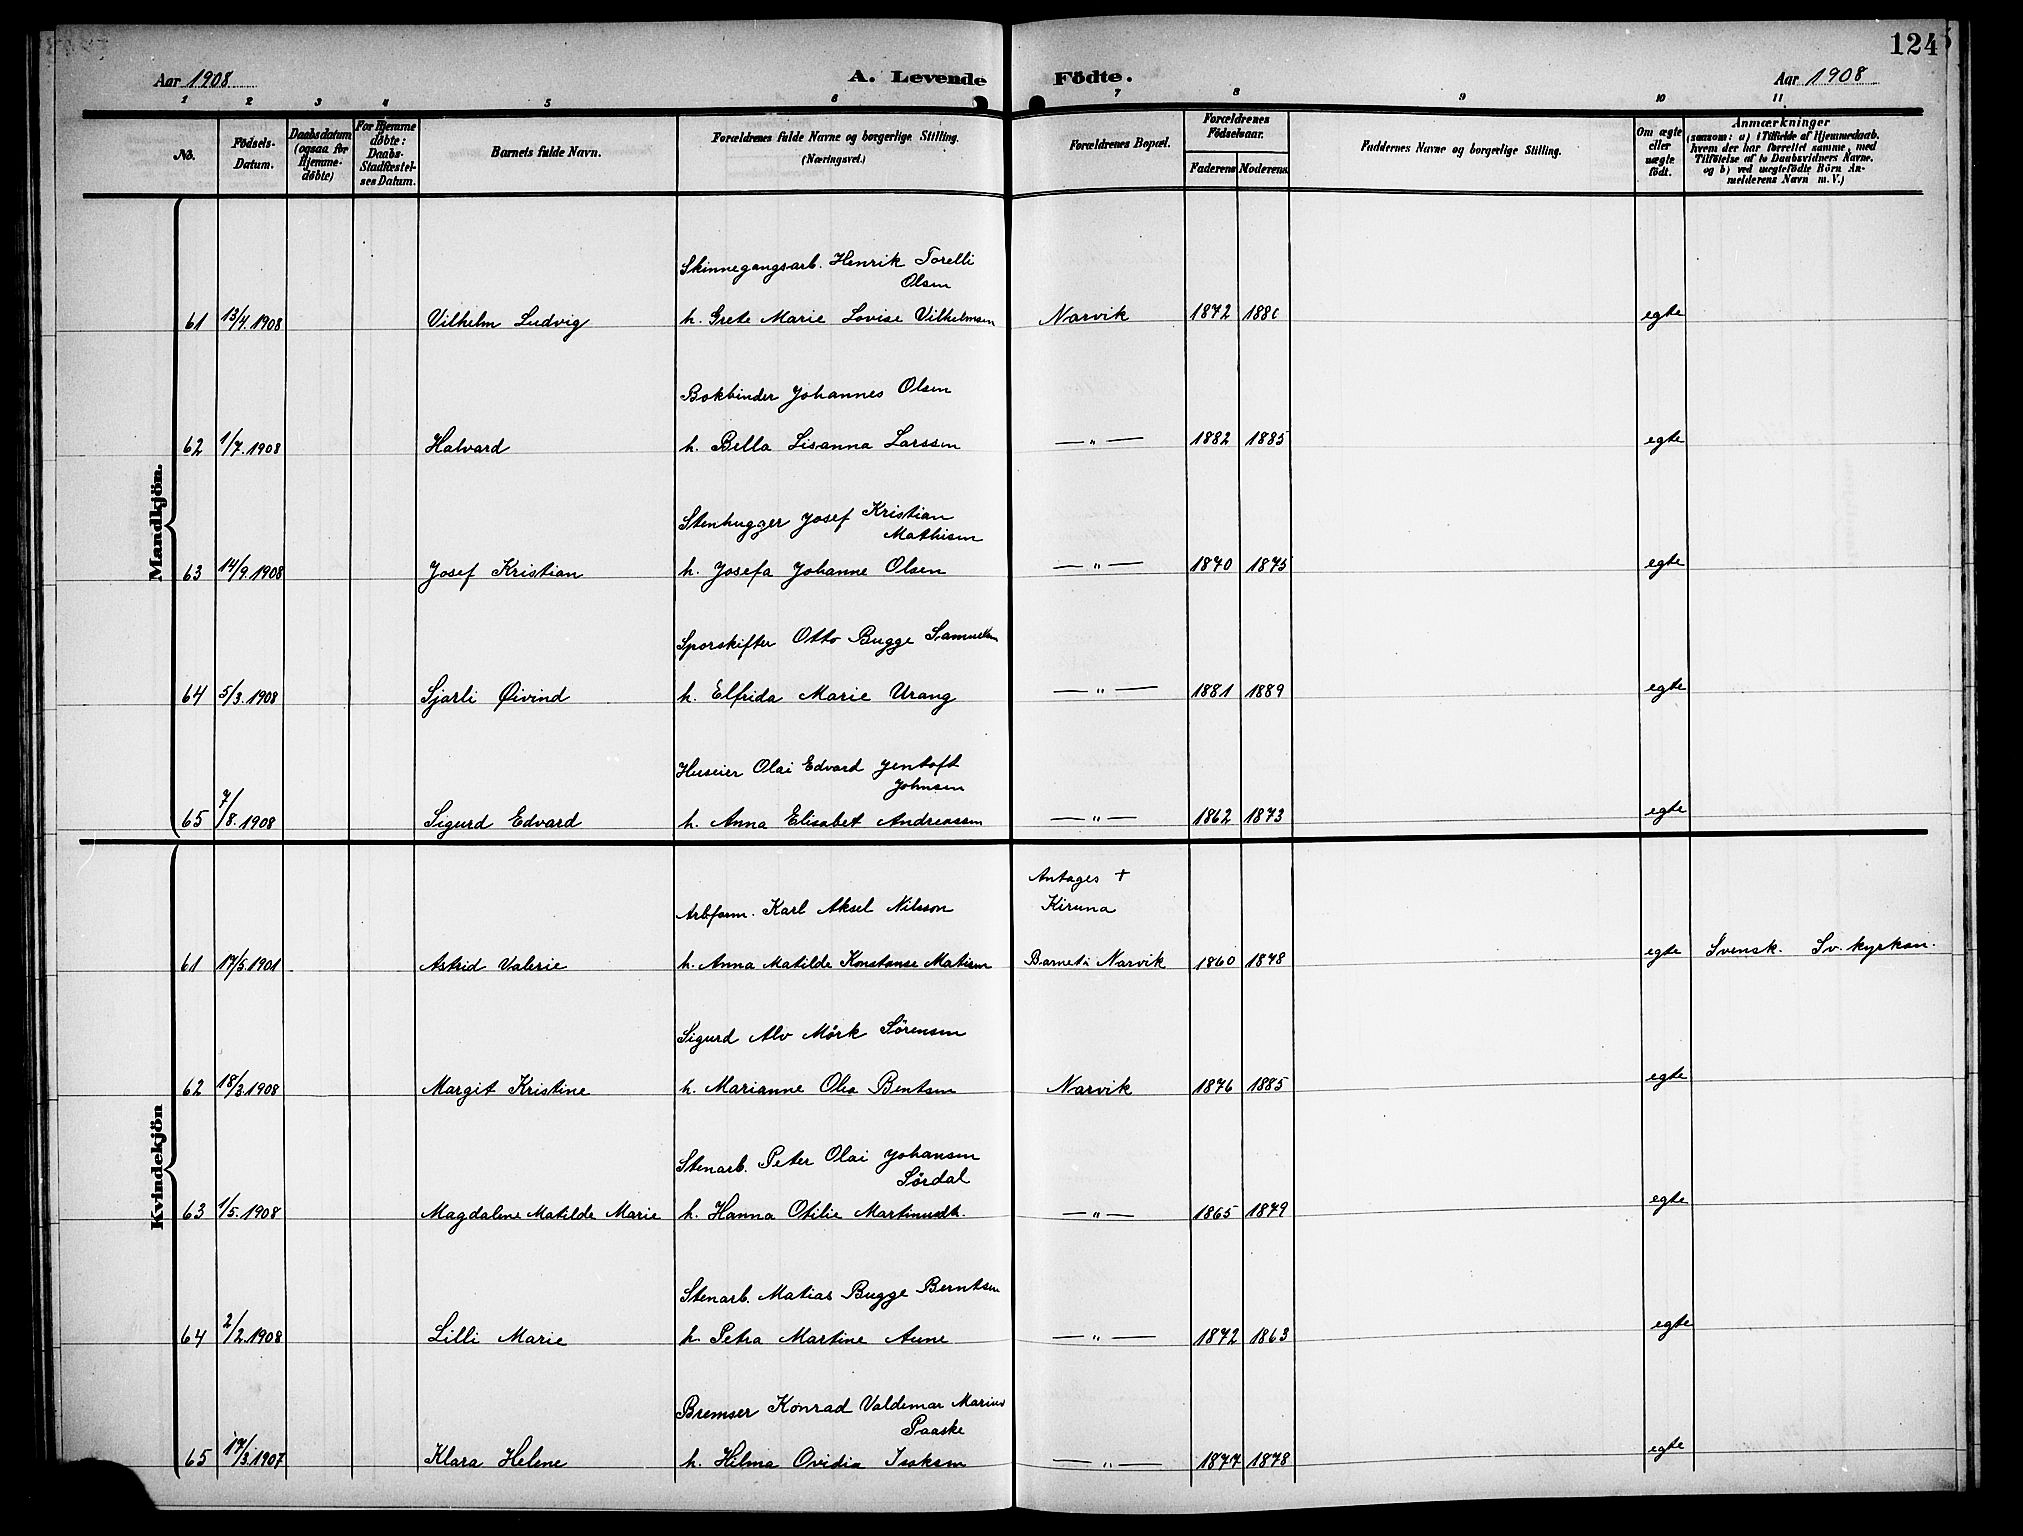 124
Aar 1908
A. Levende Födte.
Aar 1908
1 2 3 4 5 6 7 8 9 10 11
No.
Födsels-Datum.
Daabsdatum (ogsaa for Hjemme-döbte)
For Hjemme döbte: Daabs-Stadfæstel-ses Datum.
Barnets fulde Navn.
Forældrenes fulde Navne og borgerlige Stilling.
(Næringsvei.)
Forældrenes Bopæl.
Forældrenes Födselsaar.
Faderens Moderens
Faddernes Navne og borgerlige Stilling.
Om ægte eller uægte födt.
Anmærkninger
(saasom: a) i Tilfælde af Hjemmedaab.
hvem der har forrettet samme, med
Tilföielse af to Daabsvidners Navne.
og b) ved uægtefödte Börn An-
melderens Navn m.V.)
Mandkjön.
Skinnegangsarb. Henrik Torelli
Olsen
61 13/4.1908 Vilhelm Ludvig h. Grete Marie Lovise Vilhelmsen Narvik 1872 egte
Bokbinder Johannes Olsen
62 1/7.1908 Halvard h. Bella Lisanna Larssen — „ — 1882 1885 egte
Stenhugger Josef Kristian
Mathisen
63 14/9.1908 Josef Kristian h. Josefa Johanne Olsen — „ — 1870 1875 egte
Sporskifter Otto Bugge Samuelsen
64 5/3.1908 Sjarli Øivind h. Elfrida Marie Urang — „ — 1881 1889 egte
Huseier Olai Edvard Jentoft
Johnsen
65 7/8.1908 Sigurd Edvard h. Anna Elisabet Andreassen — „ — 1862 1873 egte
Kvindekjön
Antages +
Arbform. Karl Aksel Nilsson Kiruna
61 17/5.1901 Astrid Valerie h. Anna Matilde Konstanse Matisen Barnet i Narvik 1860 1878 egte Svensk. Sv. kyrkan.
Sigurd Alv Mörk Sörensen
62 18/3.1908 Margit Kristine h. Marianne Olea Bentsen Narvik 1876 1885 egte
Stenarb. Peter Olai Johansen
Sördal
63 1/5.1908 Magdalene Matilde Marie h. Hanna Otilie Martinusdt. — „ — 1865 1879 egte
Stenarb. Matias Bugge Berntsen
64 2/2.1908 Lilli Marie h. Petra Martine Aune — „ — 1872 1863 egte
Bremser Konrad Valdemar Marius
Paaske
65 17/3.1907 Klara Helene h. Hilma Ovidia Isaksen — „ — 1877 1878 egte